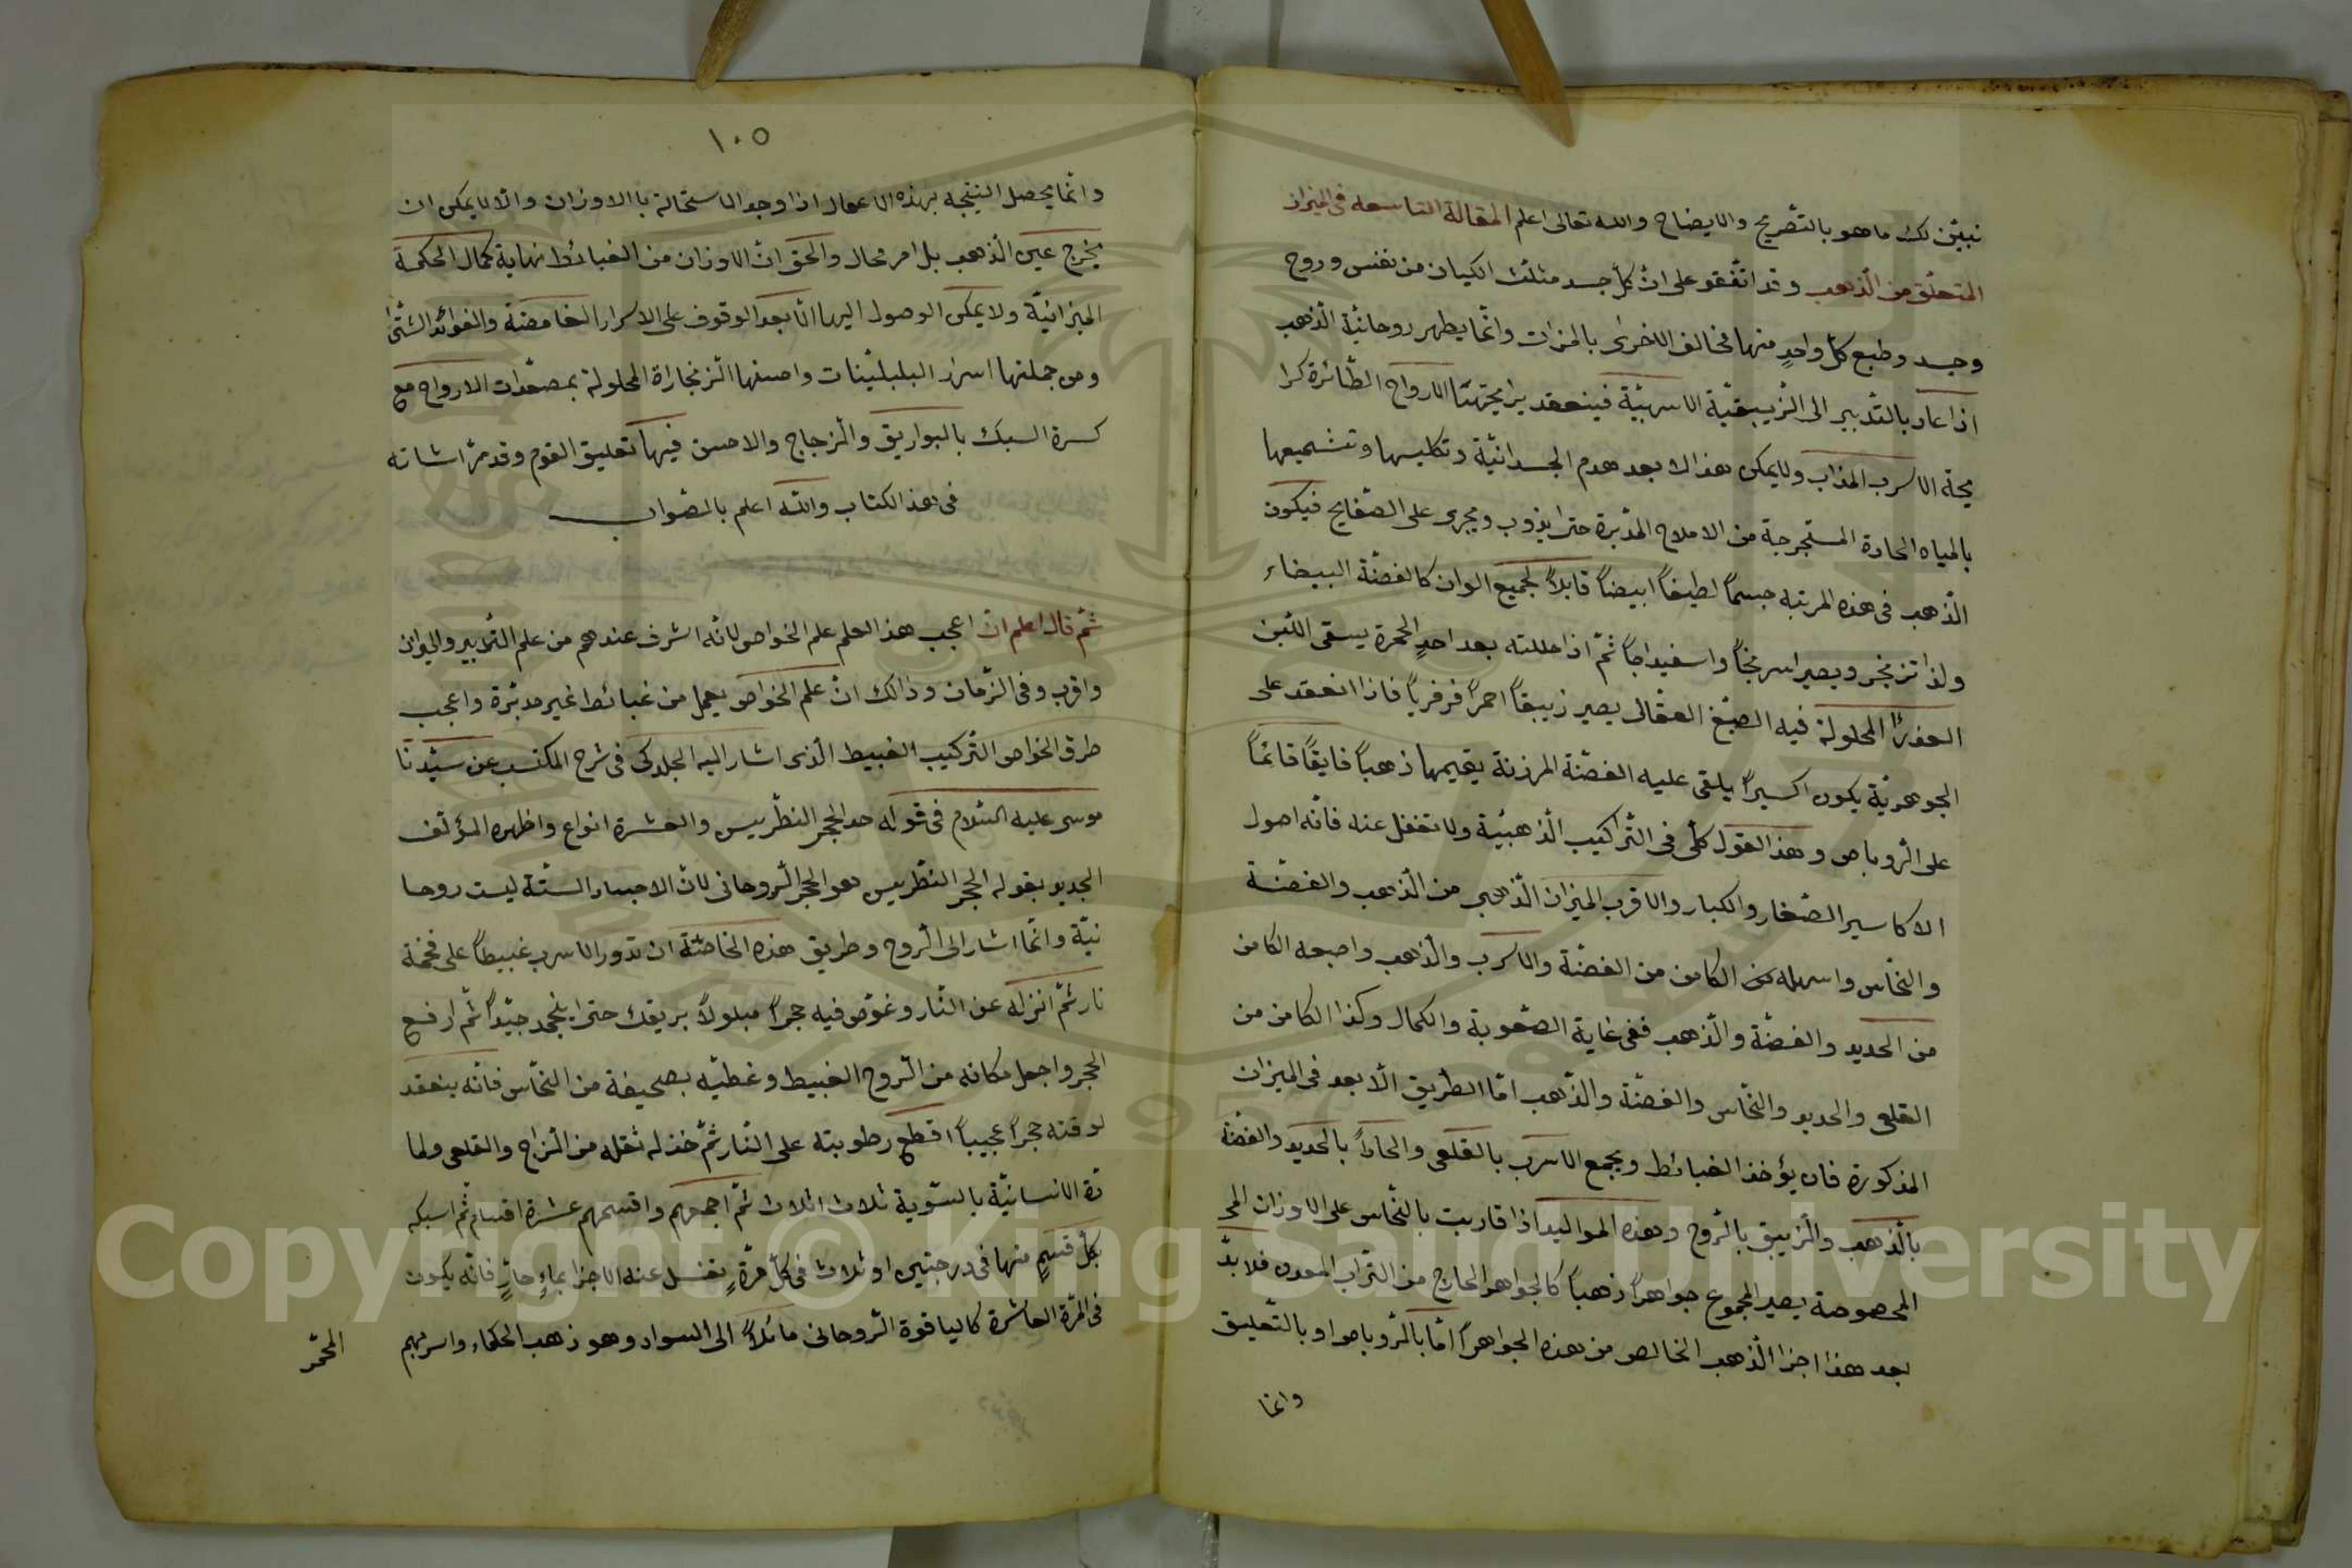 نبيّن لك ما هو بالتّصريح والايضاح والله تعالى اعلم المقالة التاسعه فى الميزان
المتحلّق من الذّهب وقد اتّفقو على انّ كلّ جسد مثلّث الكيان من نفس وروح
وجسد وطبع كلّ واحدٍ منها مخالف الاخرى بالمزات وانّما يطهر روحانيّة الذّهب
اذا عاد بالتّدبير الى الزّيبقيّة الاسربيّة فينعقد الارواح الطّائرة كرا
يحة الاسرب المذاب ولا يمكن هذا الا بعد هدم الجسدانيّة وتكليسها وتشميعها
بالمياه الحادة المستجرجة من الاملاح المدبّرة حتى ايذوب ويجرى على الصّفايح فيكون
الذّهب فى هذه المرتبه جسماً لطيفاً ابيضاً قابلاً لجميع الوان كالفضّة البيضاء
ولذا تزنجر ويصير اسرنجاً واسفيداجاً ثمّ اذا حللته بعد احدٍ الحمرة يسقى اللّبن
العذرا المحلولة فيه الصّبغ العقّالى يصير زيبقاً احمراً فرفرياً فاذا انعقد على
الجوهريّة يكون اكسيراً يلقى عليه الفضّة المرزنة يقيمها ذهباً فايقاً قائماً
على الرّوباص وهذا القول كلّى فى التّراكيب الذّهبيّة ولا تغفل عنه فانّه اصول
الاكاسير الصّغار والكبار والاقرب الميزان الذّهبى من الذّهب والفضّة
والنّحاس واسهله من الكامن من الفضّة والاسرب والذّهب واصعبه الكامن
من الحديد والفضّة والذّهب ففى غاية الصّعوبة والكمال وكذا الكامن من
القلعى والحديد والنّحاس والفضّة والذّهب امّا الطّريق الّا بعد فى الميزان
المذكورة فان يؤخذ الغبائط ويجمع الاسرب بالقلعى والحاداً بالحديد والفضة
بالذّهب والزّيبق بالرّوح وهذه المواليد اذا قاربت بالنّحاس على الاوزان المخ
المخصوصة يصير المجموع جواهراً ذهباً كالجواهر الخارج من التّراب المعدن فلا بدّ
بعد هذا اجزا الذّهب الخالص من هذه الجواهراً امّا بالرّوباص او بالتّعليق
وانما
١٠٥
وانّما يحصل النتيجه بهذه الاعمال اذا وجد الاستحالة باالاوزان والّا لا يمكن ان
يخرج عين الذّهب بل امر محال والحق انّ الاوزان من الغبائط نهاية كمال الحكمة
الميزانيّة ولا يمكن الوصول اليها الّا بعد الوقوف على الاسرار الغامضة والفوائد الشتّى
ومن جملتها اسرار البلبليّنات واحسنها الزّنجاراة المحلولة بمصعّدات الارواح مع
كسرة السبك بالبواريق والزجاج والاحسن فيها تعليق القوم وقد مرّ اشاته
فى هذ الكتاب والله اعلم بالصّواب
ثمّ قال اعلم انّ اعجب هذ العلم علم الخواص لانّه اشرف عندهم من علم التّدبير والميزان
واقرب وفى الزّمان وذالك انّ علم الخواص يعمل من غبائط غير مدبّرة واعجب
طرق الخواص التّركيب الغبيط الّذى اشار اليه الجلدكى فى شرح المكتسب عن سيّدنا
موسى عليه السّلام فى قوله حد الحجر النطّريس والعشرة انواع واظهره المؤلّف
الجديد بقوله الحجر النطّريس هو الحجر الرّوحانى لانّ الاجساد الستّة ليست روحا
نيّة وانّما اشار الى الرّوح وطريق هذه الخاصّة ان تدور الاسرب غبيطاً على فحمة
نار ثمّ انزله عن النّار وغوّص فيه حجراً مبلولاً بريقك حتى اينجمد جيّداً ثمّ ارفع
الحجر واجعل مكانه من الرّوح الغبيط وغطّيه بصحيفة من النحّاس فانّه ينعقد
لوقته حجراً عجيباً اقطع رطوبته على النّار ثمّ خذ له ثقله من الزاج والقلعى ولما
دّة الانسانيّة بالسّوية ثلاث اثلاث ثمّ اجمعهم واقسمهم عشرة اقسام ثمّ اسبكه
بكلّ قسمٍ منها فى درجتين او ثلاث فى كلّ مرّةٍ تغسل عنه الاجزا بماءٍ حارٍّ فانّه يكون
فى المرّة العاشرة كالياقوة الرّوحانى مائلاً الى السواد وهو ذهب الحكماء واسربهم
المحّمر
Copyright © King Saud University